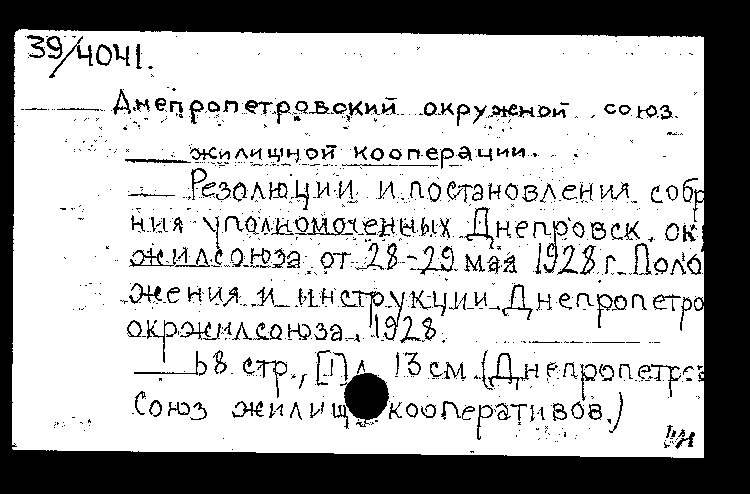 39/4041.
Днепропетровский окружной союз
жилищной кооперации.
Резолюции и постановления собр
ния уполномоченных Днепровск. ок
жилсоюза от 28-29 мая 1928 г. Поло
жения и инструкции Днепропетро
окржилсоюза. 1928.
68 стр., [1] л. 13 см (Днепропетров
Союз жилищ кооперативов.)